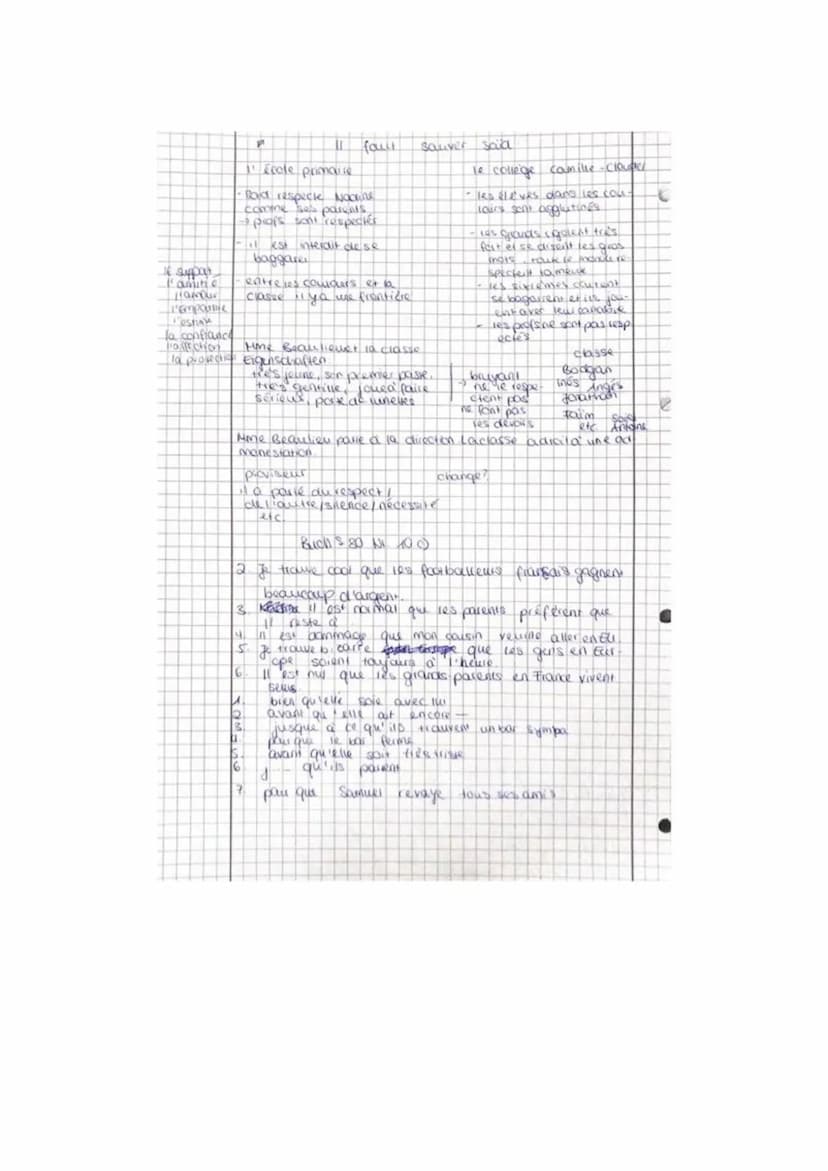 Il faut sauver Saïd
l'École primaire
- Saïd respecte Nadine
comme ses parents
→ profs sont respectés
- il est interdit de se
baggarer
- entre les couloirs et la
classe il y a une frontière
le collège Camille-Claudel
- les élèves dans les cou-
loirs sont agglutinés
- les grands rigolent très
fort et se disent les gros
mots
- les sixièmes courent
se bagarrent et ils jou-
ent avec leur
- les profs ne sont pas resp
ectés
le support
l'amitié
l'amour
l'empathie
l'estime
la confiance
l'affection
la protection
Mme Beaulieu et la classe
Eigenschaften
très jeune, son premier poste,
très gentille, joue à faire
sérieux, porte de lunettes
bruyant
→ ne le respe-
ctent pas
ne font pas
les devoirs
classe
Bodgan
Inès Angès
Jonathan
Taïm Saïd
etc. Antoine
Mme Beaulieu parle à la direction La classe a droit à une ad
monestation.
proviseur change?
il a parlé du respect /
de l'autre / silence / nécessité
etc.
Buch S 80 Nr. 10 c)
2. Je trouve cool que les footballeurs français gagnent
beaucoup d'argent.
3. Il est normal que les parents préfèrent que
il reste à
4. Il est dommage que mon cousin veuille aller en
5. Je trouve bizarre que les gens en Eur-
ope soient toujours à l'heure.
6. Il est nul que les grands-parents en France vivent
seuls
1. bien qu'elle soie avec lui
2. avant qu'elle ait encore —
3. jusque à ce qu'ils trouvent un bar sympa
4. pour que le bar ferme
5. avant qu'elle soit très triste
6. j – qu'ils paient
7. pour que Samuel revoye tous ses amis